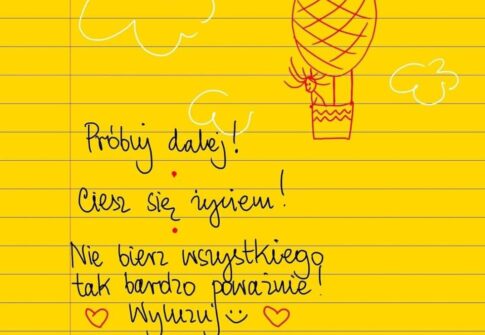 Próbuj dalej!
Ciesz się życiem!
Nie bierz wszystkiego
tak bardzo poważnie!
Wyluzuj